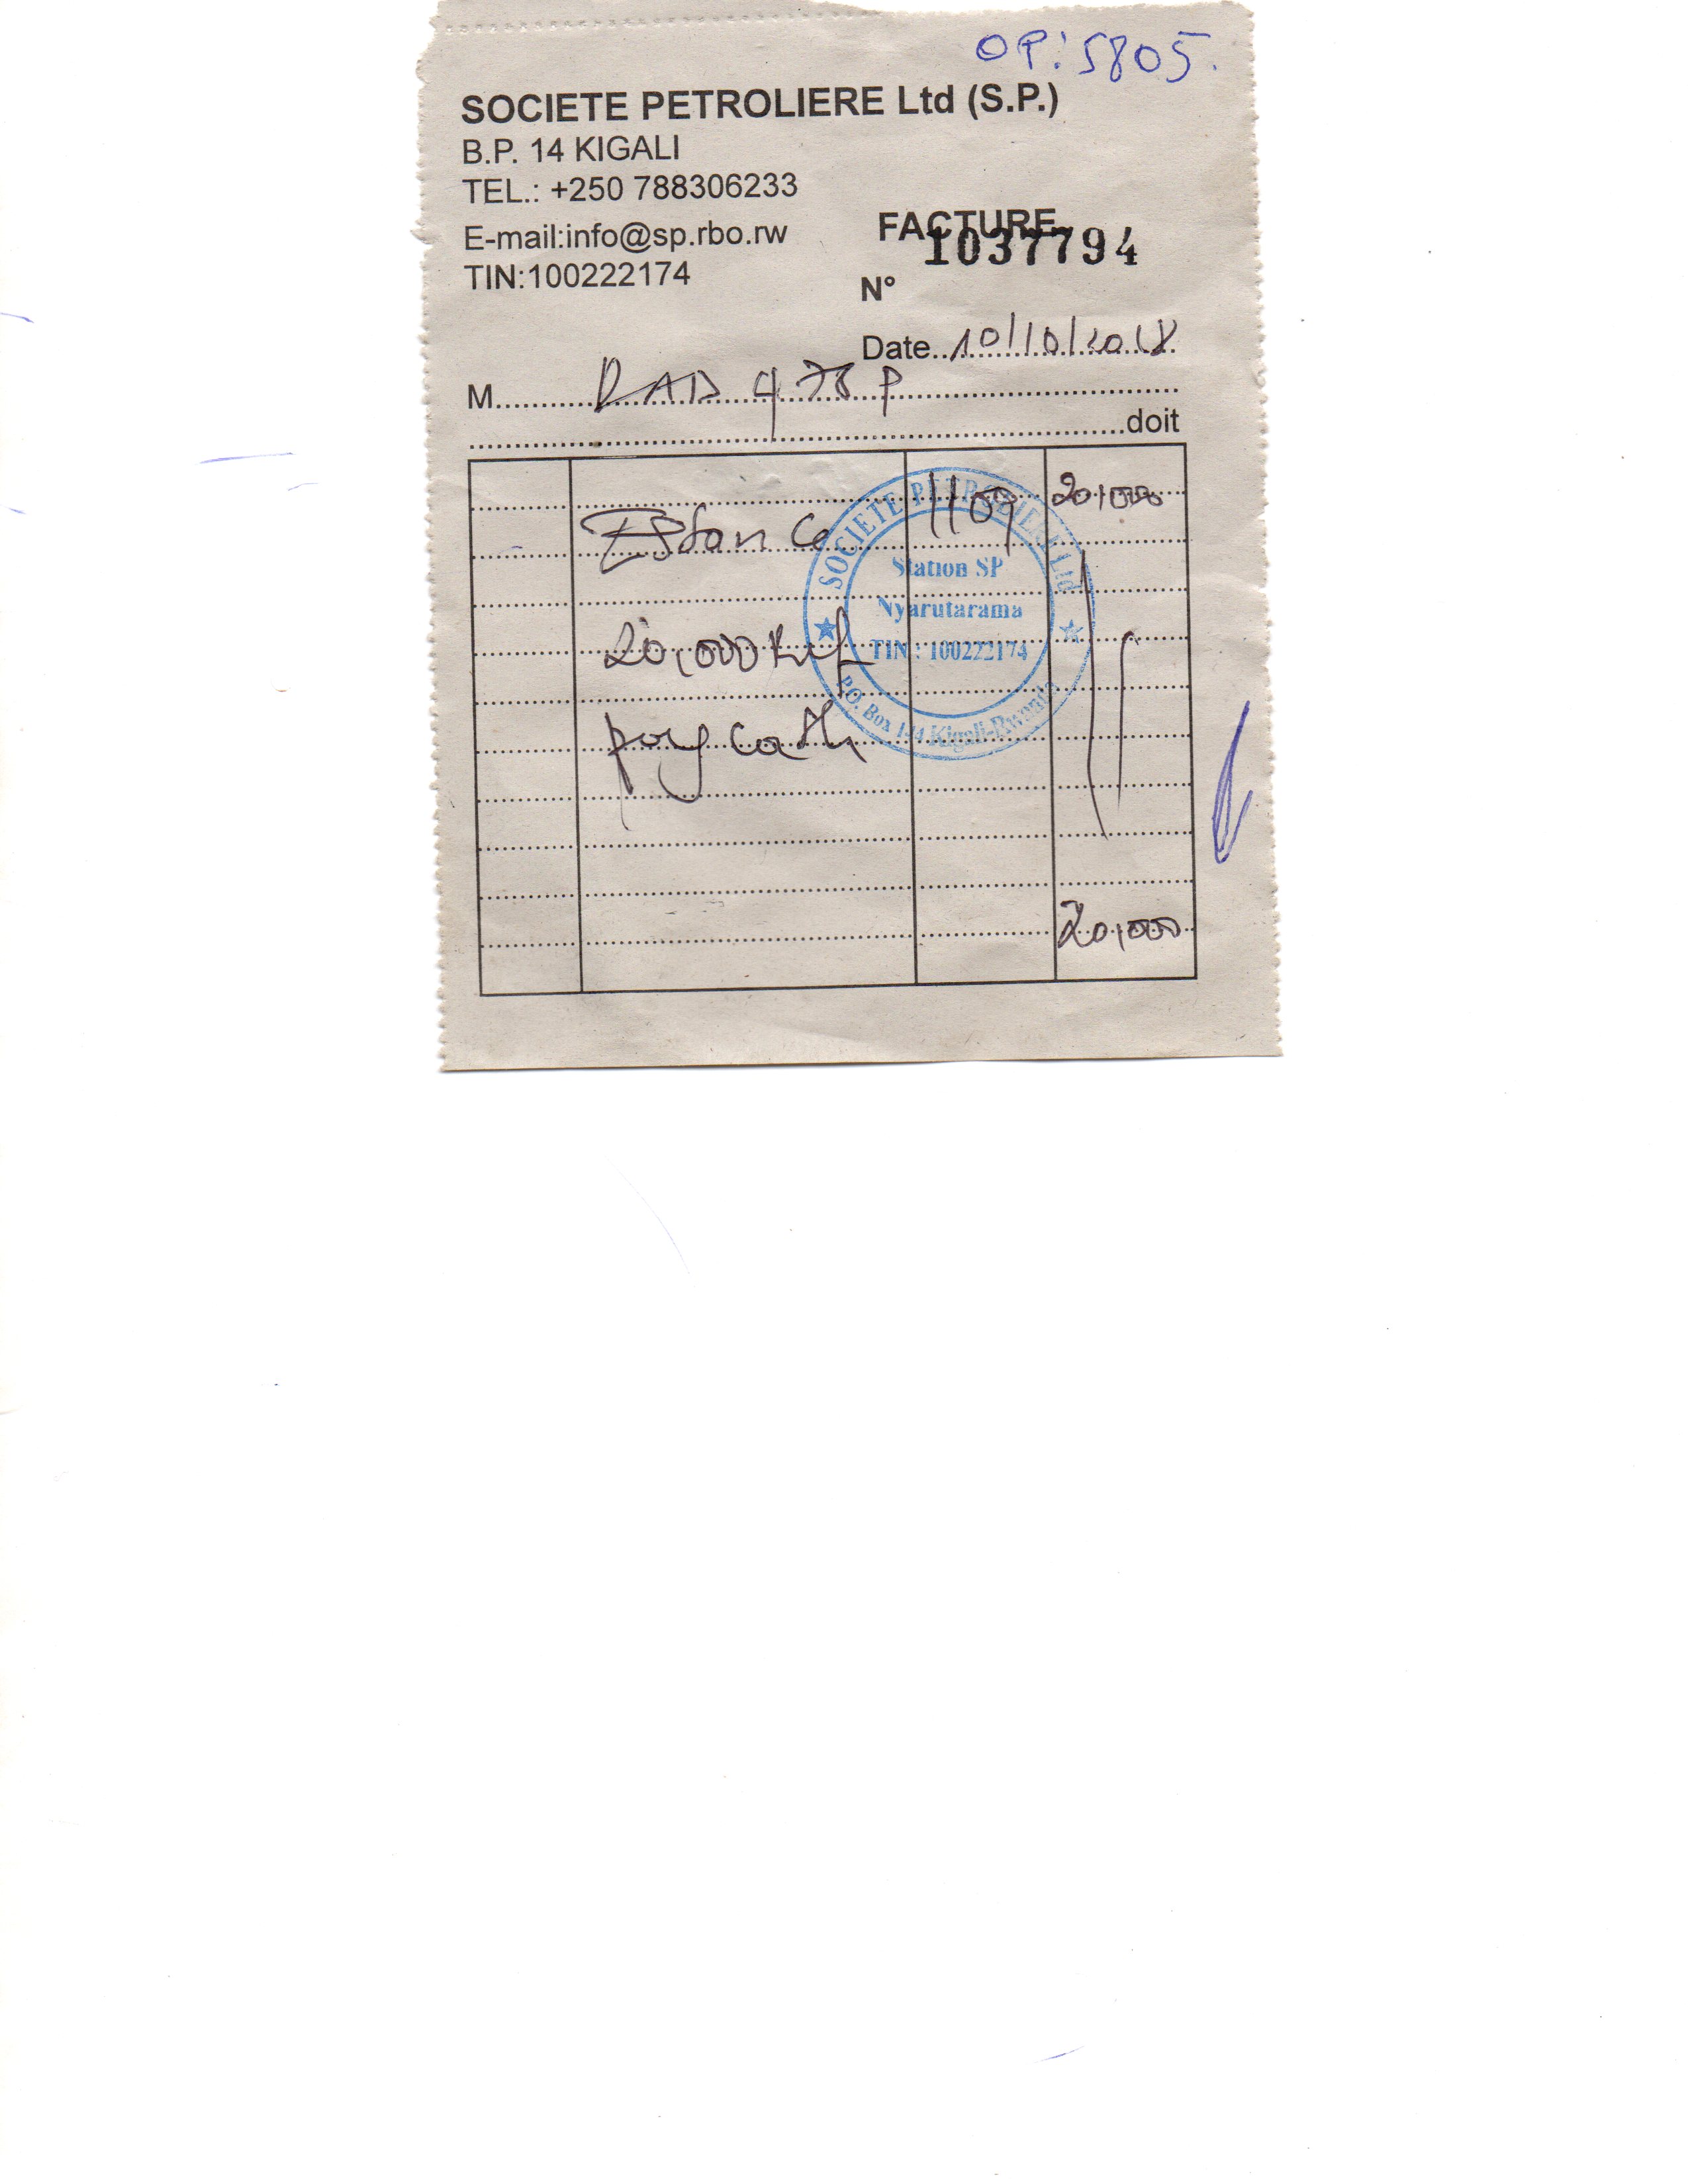 OP: 5805.
SOCIETE PETROLIERE Ltd (S.P.)
B.P. 14 KIGALI
TEL.: +250 788306233
E-mail:info@sp.rbo.rw
TIN:100222174
FACTURE
1037794
N°
Date 10/10/2018
M RAD 478 P
doit
Essence 1109 20,000
20,000 Rwf
pay cash
20,000
SOCIETE PETROLIERE Ltd
Station SP
Nyarutarama
TIN : 100222174
P.O. Box 144 Kigali-Rwanda